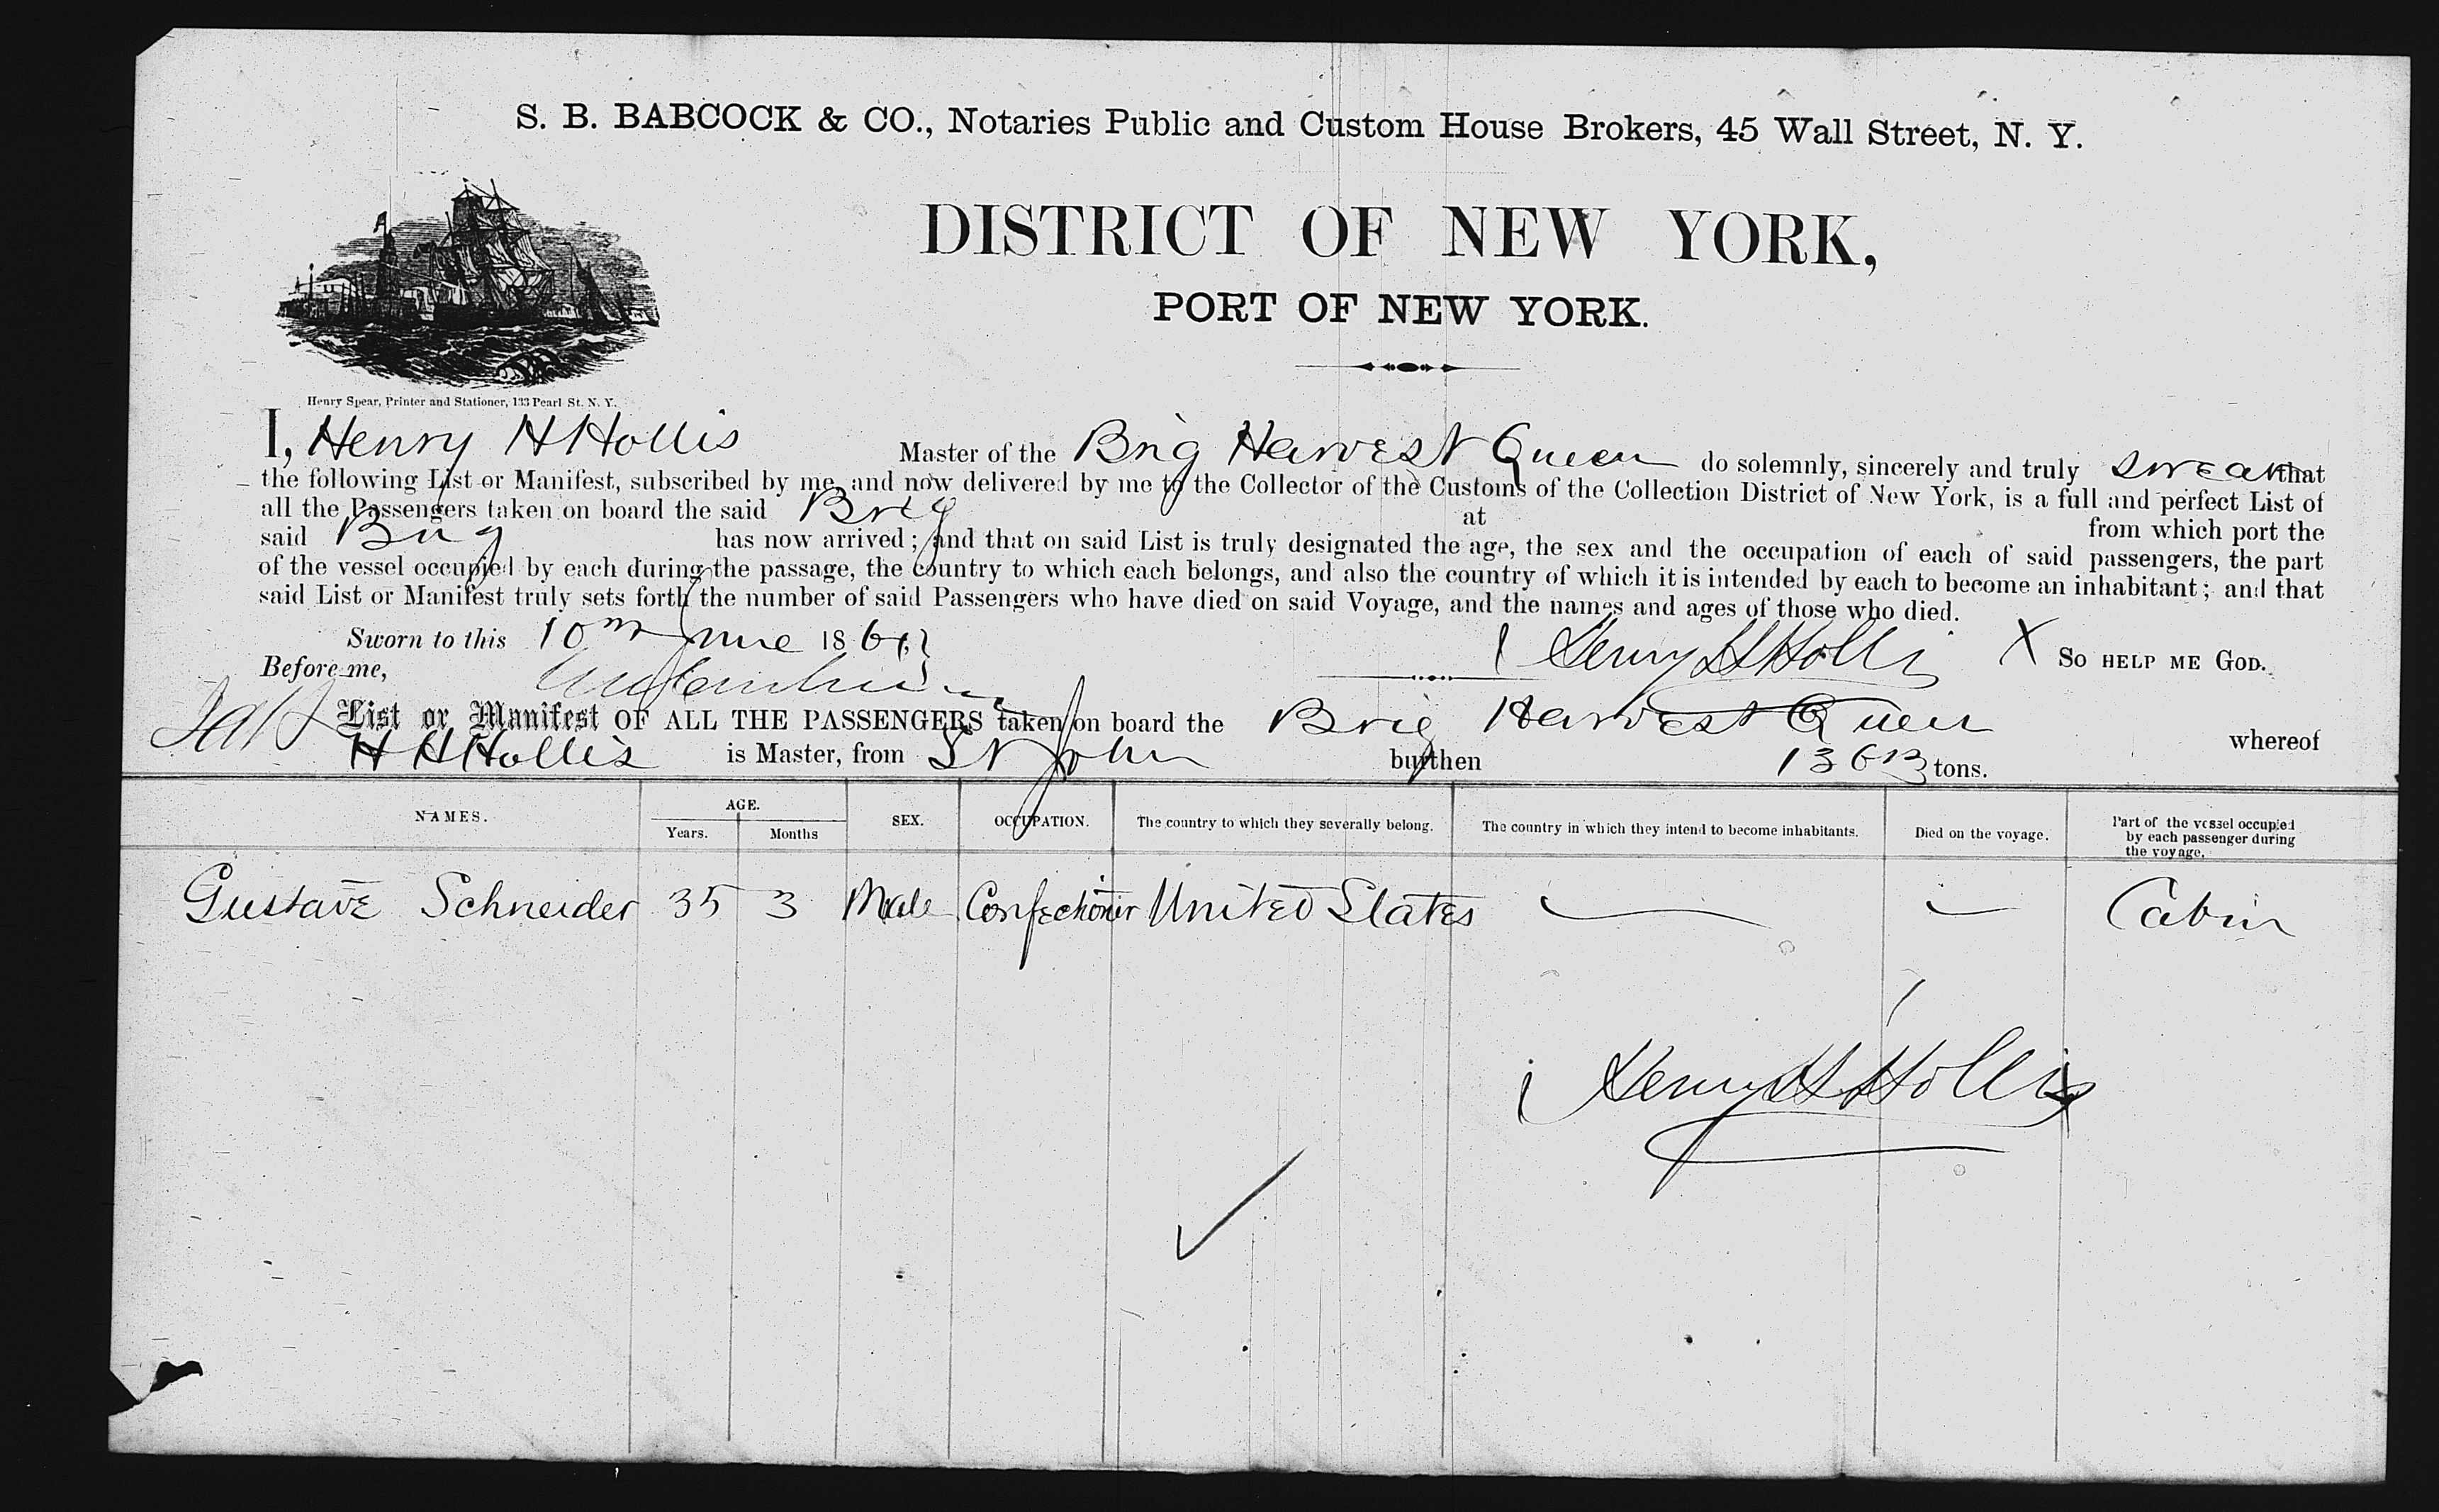 S. B. BABCOCK & CO., Notaries Public and Custom House Brokers, 45 Wall Street, N. Y.
DISTRICT OF NEW YORK,
PORT OF NEW YORK.
Henry Spear, Printer and Stationer, 133 Pearl St. N. Y.
I, Henry H Hollis Master of the Brig Harvest Queen do solemnly, sincerely and truly swear that
the following List or Manifest, subscribed by me, and now delivered by me to the Collector of the Customs of the Collection District of New York, is a full and perfect List of
all the Passengers taken on board the said Brig at from which port the
said Brig has now arrived; and that on said List is truly designated the age, the sex and the occupation of each of said passengers, the part
of the vessel occupied by each during the passage, the country to which each belongs, and also the country of which it is intended by each to become an inhabitant; and that
said List or Manifest truly sets forth the number of said Passengers who have died on said Voyage, and the names and ages of those who died.
Sworn to this 10th June 186 Henry H Hollis X SO HELP ME GOD.
Before me,
List or Manifest OF ALL THE PASSENGERS taken on board the Brig Harvest Queen whereof
H H Hollis is Master, from St John burthen tons.
NAMES. AGE. Years. Months SEX. OCCUPATION. The country to which they severally belong. The country in which they intend to become inhabitants. Died on the voyage. Part of the vessel occupied by each passenger during the voyage.
Gustave Schneider 35 3 Male Confectioner United States — — Cabin
Henry H Hollis